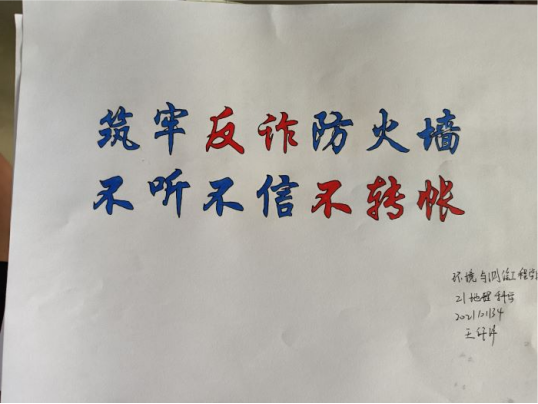 筑牢反诈防火墙
不听不信不转帐
环境与测绘工程学
21地理科学